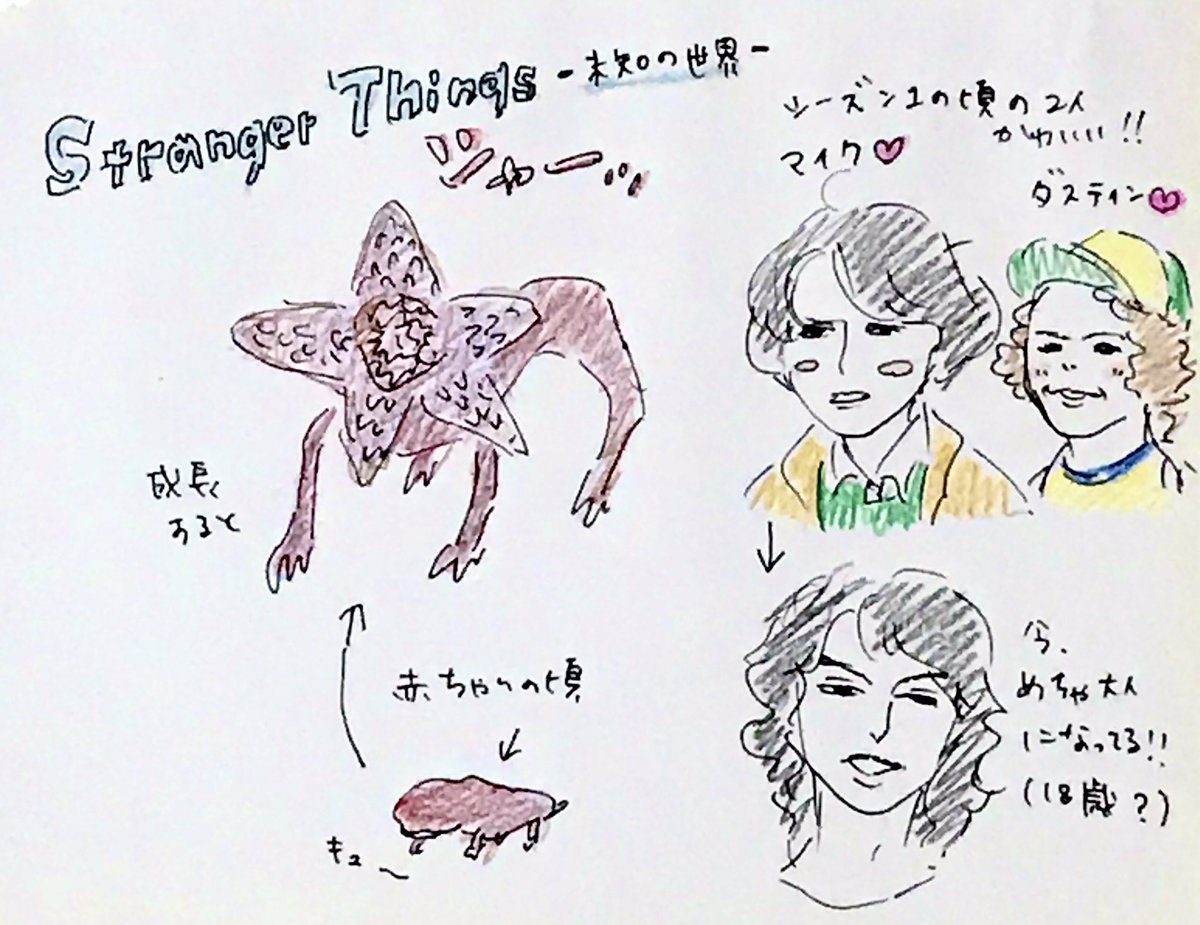 Stranger Things -未知の世界-
シャーッ
シーズン1の頃の2人
かわいい!!
マイク♥
ダスティン♥
成長
すると
赤ちゃんの頃
キュ〜
今、
めちゃ大人
になってる!!
(18歳?)